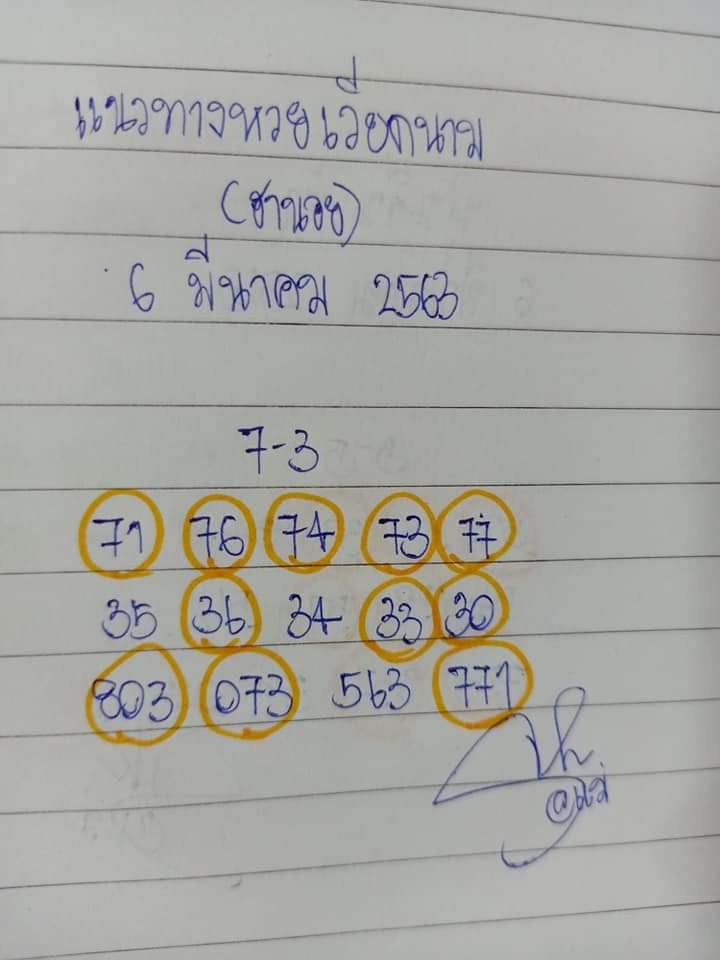 แนวทางหวยเวียดนาม
(ฮานอย)
6 มีนาคม 2563
7-3
71 76 74 73 77
35 36 34 33 30
803 073 563 771